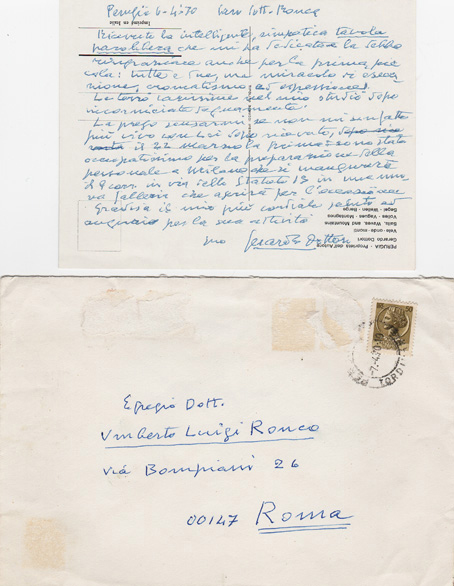 Perugia 6-4-70 Caro Dott. Ronco
Ricevuto la intelligente, simpatica tavola
parolibera che mi ha dedicata. La debbo
ringraziare anche per la prima, pic
cola: tutte e due, un miracolo di esecu
zione, cromatismo ed espressione.
Le terrò carissime nel mio studio dopo
incorniciate degnamente.
La prego scusarmi se non mi son fatto
più vivo con Lei dopo ricevuto,
il 22 marzo la prima: sono stato
occupatissimo per la preparazione della
personale a Milano che si inaugurerà
il 9 corr. in via dello Statuto 13 in una nuo
va galleria che aprirà per l'occasione.
Gradisca il mio più cordiale saluto ed
augurio per la sua attività
suo Gerardo Dottori
Imprimé en Italie
PERUGIA - Proprietà dell'Autore
Gerardo Dottori
Vele - onde - monti
Sails, Waves and Mountains
Voiles - Vagues - Montagnes
Segel - Wellen - Berge
7-4-70
TORDI
Egregio Dott.
Umberto Luigi Ronco
via Bompiani 26
00147 Roma